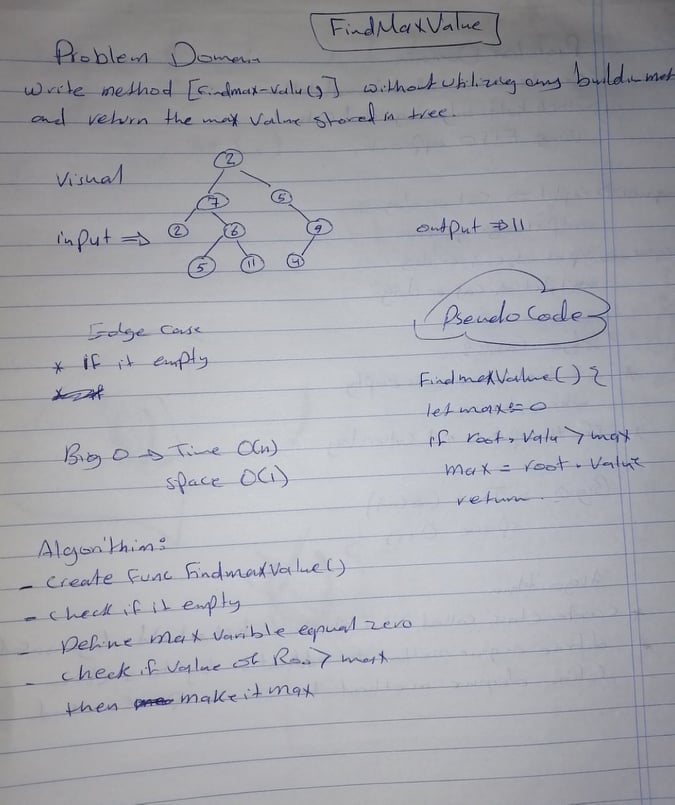 FindMaxValue
Problem Domain
Write method [Findmax-value()] without utilizing any build in met
and return the max value stored in tree.
Visual
2
7 5
input => 2 6 9 output => 11
5 11 4
Edge Case
* if it empty
*
Pseudo Code
FindmaxValue() {
let max = 0
if root.valu > max
max = root.value
return
Big O -> Time O(n)
space O(1)
Algorithim:
- Create Func FindmaxValue()
- check if it empty
- Define max varible eqpual zero
- check if value of Roo > max
then make it max